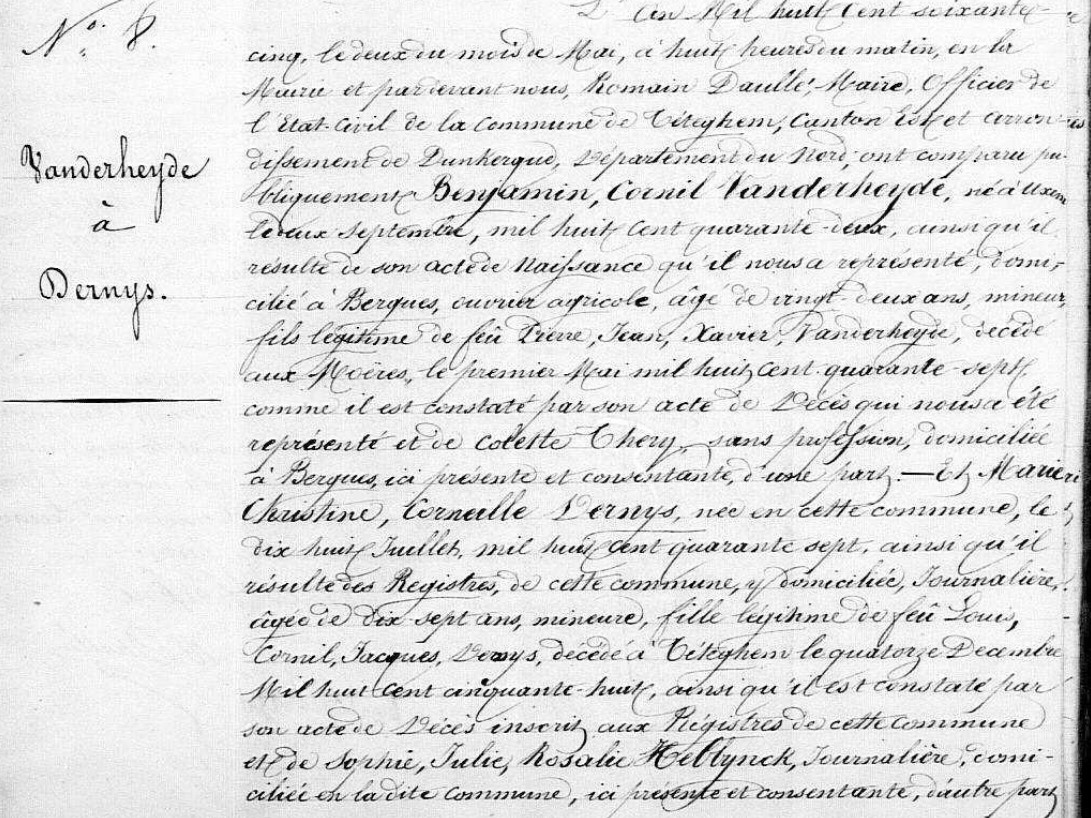 N.º 8.
Vanderheyde
à
Dernys.
L'an Mil huit Cent soixante-
cinq, le deux du mois de Mai, à huit heures du matin, en la
Mairie et par devant nous, Romain Daullé, Maire, Officier de
l'Etat-Civil de la Commune de Téteghem, Canton Est et arron-
dissement de Dunkerque, Département du Nord, ont comparu pu-
bliquement Benjamin, Cornil Vanderheyde, né à Uxem
le deux Septembre, mil huit Cent quarante-deux, ainsi qu'il
résulte de son acte de Naissance qu'il nous a représenté, domi-
cilié à Bergues, ouvrier agricole, âgé de vingt-deux ans, mineur,
fils légitime de feû Pierre, Jean, Xavier, Vanderheyde, décédé
aux Moëres, le premier Mai mil huit Cent quarante-sept
comme il est constaté par son acte de Décès qui nous a été
représenté et de Colette Thery, sans profession, domiciliée
à Bergues, ici présente et consentante, d'une part. — Et Marie
Christine, Corneille Dernys, née en cette commune, le
dix huit Juillet, mil huit Cent quarante sept, ainsi qu'il
résulte des Registres, de cette commune, y domiciliée, Journalière,
âgée de dix-sept ans, mineure, fille légitime de feû Louis,
Cornil, Jacques, Dernys, décédé à Téteghem le quatorze Décembre
Mil huit Cent cinquante-huit, ainsi qu'il est constaté par
son acte de Décès inscrit, aux Régistres de cette Commune
et de Sophie, Julie, Rosalie Heblynck, Journalière, domi-
ciliée en la dite Commune, ici présente et consentante, d'autre part